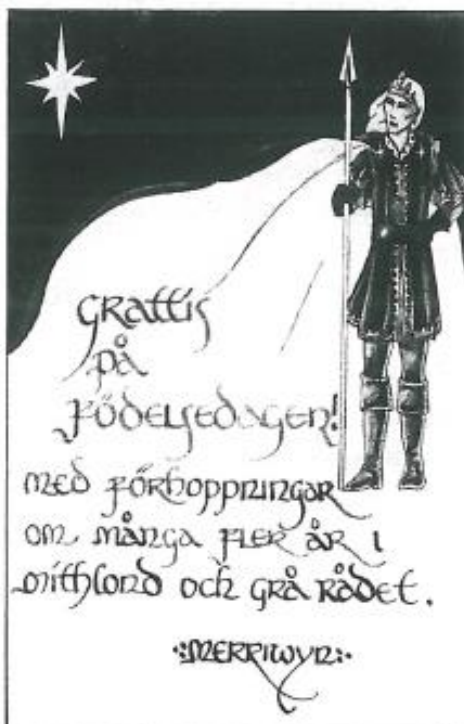 Grattis
på
födelsedagen!
med förhoppningar
om många fler år i
mithlond och grå rådet.
·:MERRIWYN:·